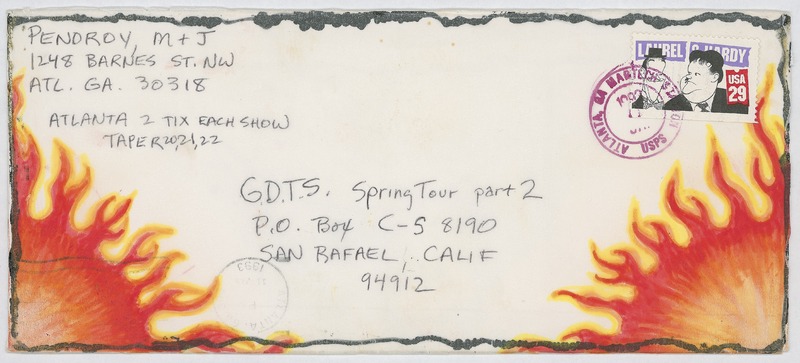 PENDROY, M + J
1248 BARNES ST. NW
ATL. GA. 30318
ATLANTA 2 TIX EACH SHOW
TAPER 20,21,22
LAUREL & HARDY
USA
29
ATLANTA, GA
USPS
G.D.T.S. Spring Tour part 2
P.O. Box C-S 8190
SAN RAFAEL, CALIF
94912
1993